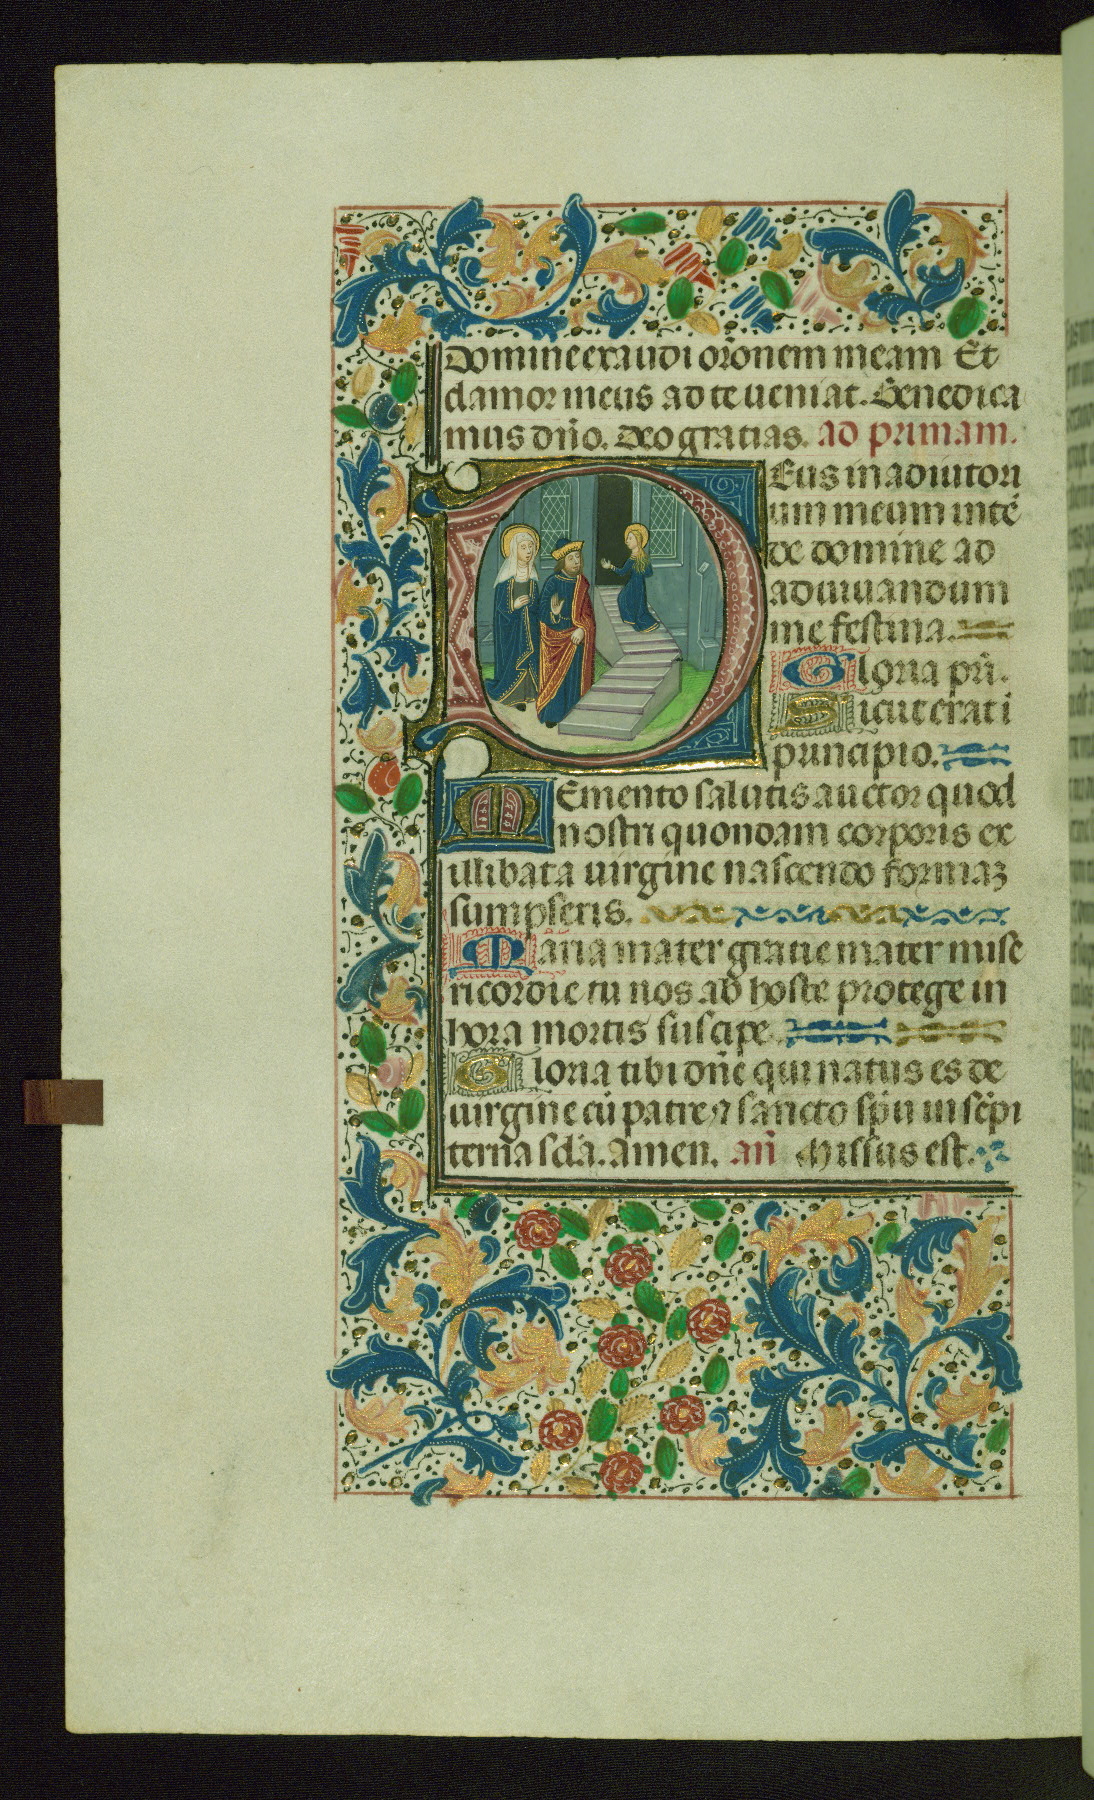 Domine exaudi orōnem meam Et
clamor meus ad te ueniat. Benedica
mus dn̄o. Deo gratias. ad primam.
Deus in adiutori
um meum intē
de domine ad
adiuuandum
me festina.
Gloria pr̄i.
Sicut erat i
principio.
Memento salutis auctor quod
nostri quondam corporis ex
illibata uirgine nascendo formaȝ
sumpseris.
Maria mater gratie mater mise
ricordie tu nos ab hoste protege in
hora mortis suscipe.
Gloria tibi dn̄e qui natus es de
uirgine cū patre ⁊ sancto sp̄u in sēpi
terna sc̄la. amen. an̄ Missus est.